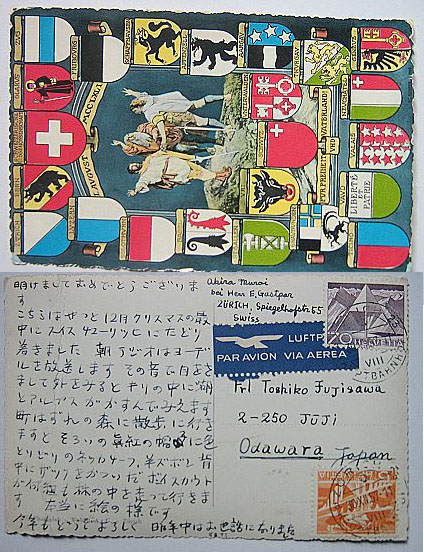 ZUG
FRIBOURG
SCHAFFHAUSEN
APPENZELL
AARGAU
THURGAU
GENÈVE
GLARUS
UNTERWALDEN
NEUCHÂTEL
SCHWYZ
VALAIS
BERN
FÜR FREIHEIT UND VATERLAND
VAUD
LIBERTÉ
ET
PATRIE
ZÜRICH
LUZERN
明けましておめでとうございます
こちらはやっと12月クリスマスの最
中にスイス チューリッヒにたどり
着きました 朝ラジオはヨーデ
ルを放送します その音で目をさ
まして外を みると キリの中に湖
とアルプスが かすんで みえます
町はずれの森に散歩に行き
ますと そろいの真紅の帽子に色
とりどりのネッカチーフ、半ズボン 背
中にザックをかついだ ボーイスカウト
が何組も林の中を走って行きま
す 本当に絵の様です
今年もどうぞよろしく 昨年中はお世話になりました
Akira Murai
bei Herr E. Gastpar
ZÜRICH, Spiegelhofstr 65
Swiss
20
HELVETIA
LUFTP
PAR AVION VIA AEREA
VIII
Frl Toshiko Fujisawa
2-250 JŪJI
Odawara
Japan